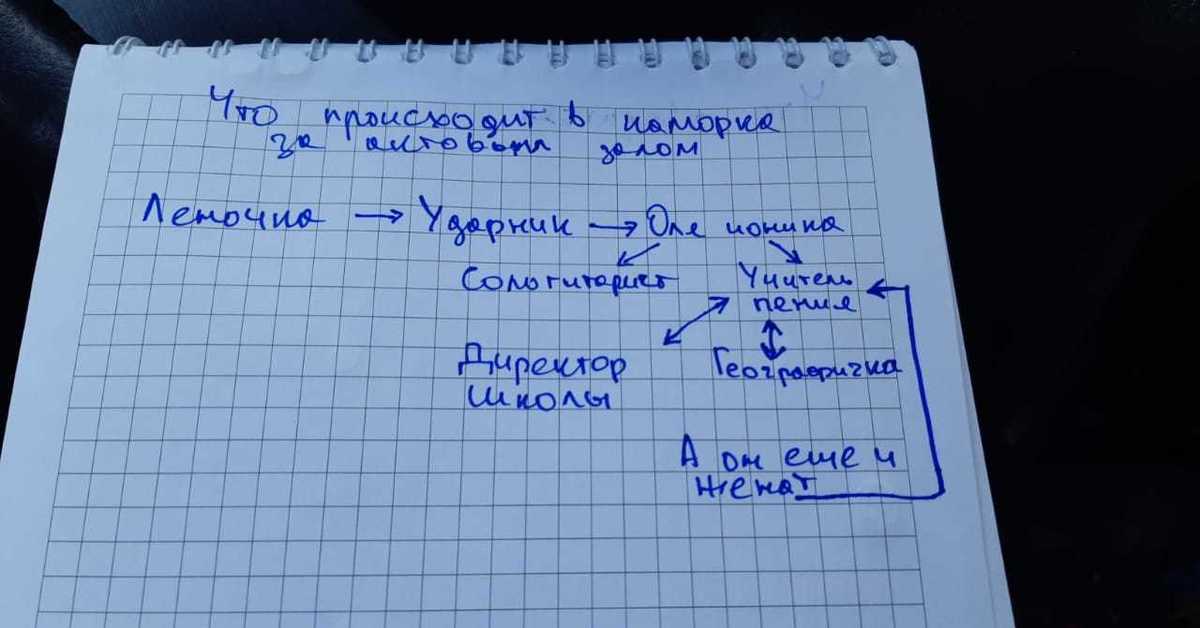 Что происходит в каморка
за актовым залом
Леночка → Ударник → Оля ионика
Сологитарист
Учитель
пения
Директор
школы
Географичка
А он еще и
женат